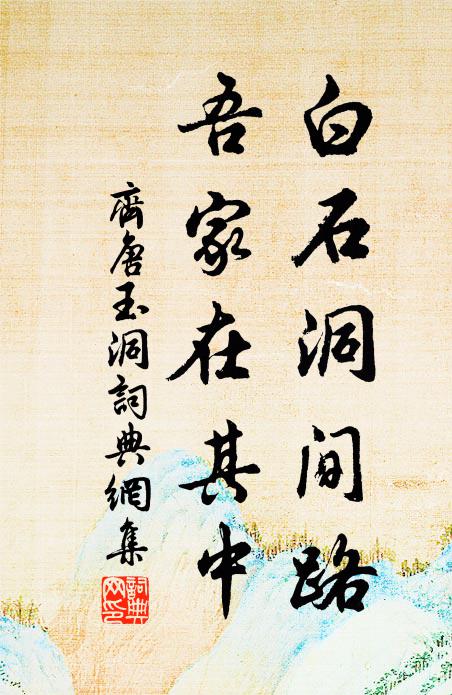 白石洞間路
吾家在其中
齊唐玉洞詞典網集
詞典网印